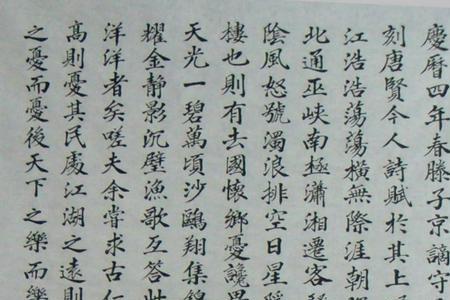 慶曆四年春滕子京謫守
刻唐賢今人詩賦於其上
江浩浩蕩蕩橫無際涯朝
北通巫峽南極瀟湘遷客
陰風怒號濁浪排空日星
樓也則有去國懷鄉憂讒畏
天光一碧萬頃沙鷗翔集錦
耀金靜影沉璧漁歌互答此
洋洋者矣嗟夫余嘗求古仁
高則憂其民處江湖之遠則
之憂而憂後天下之樂而樂